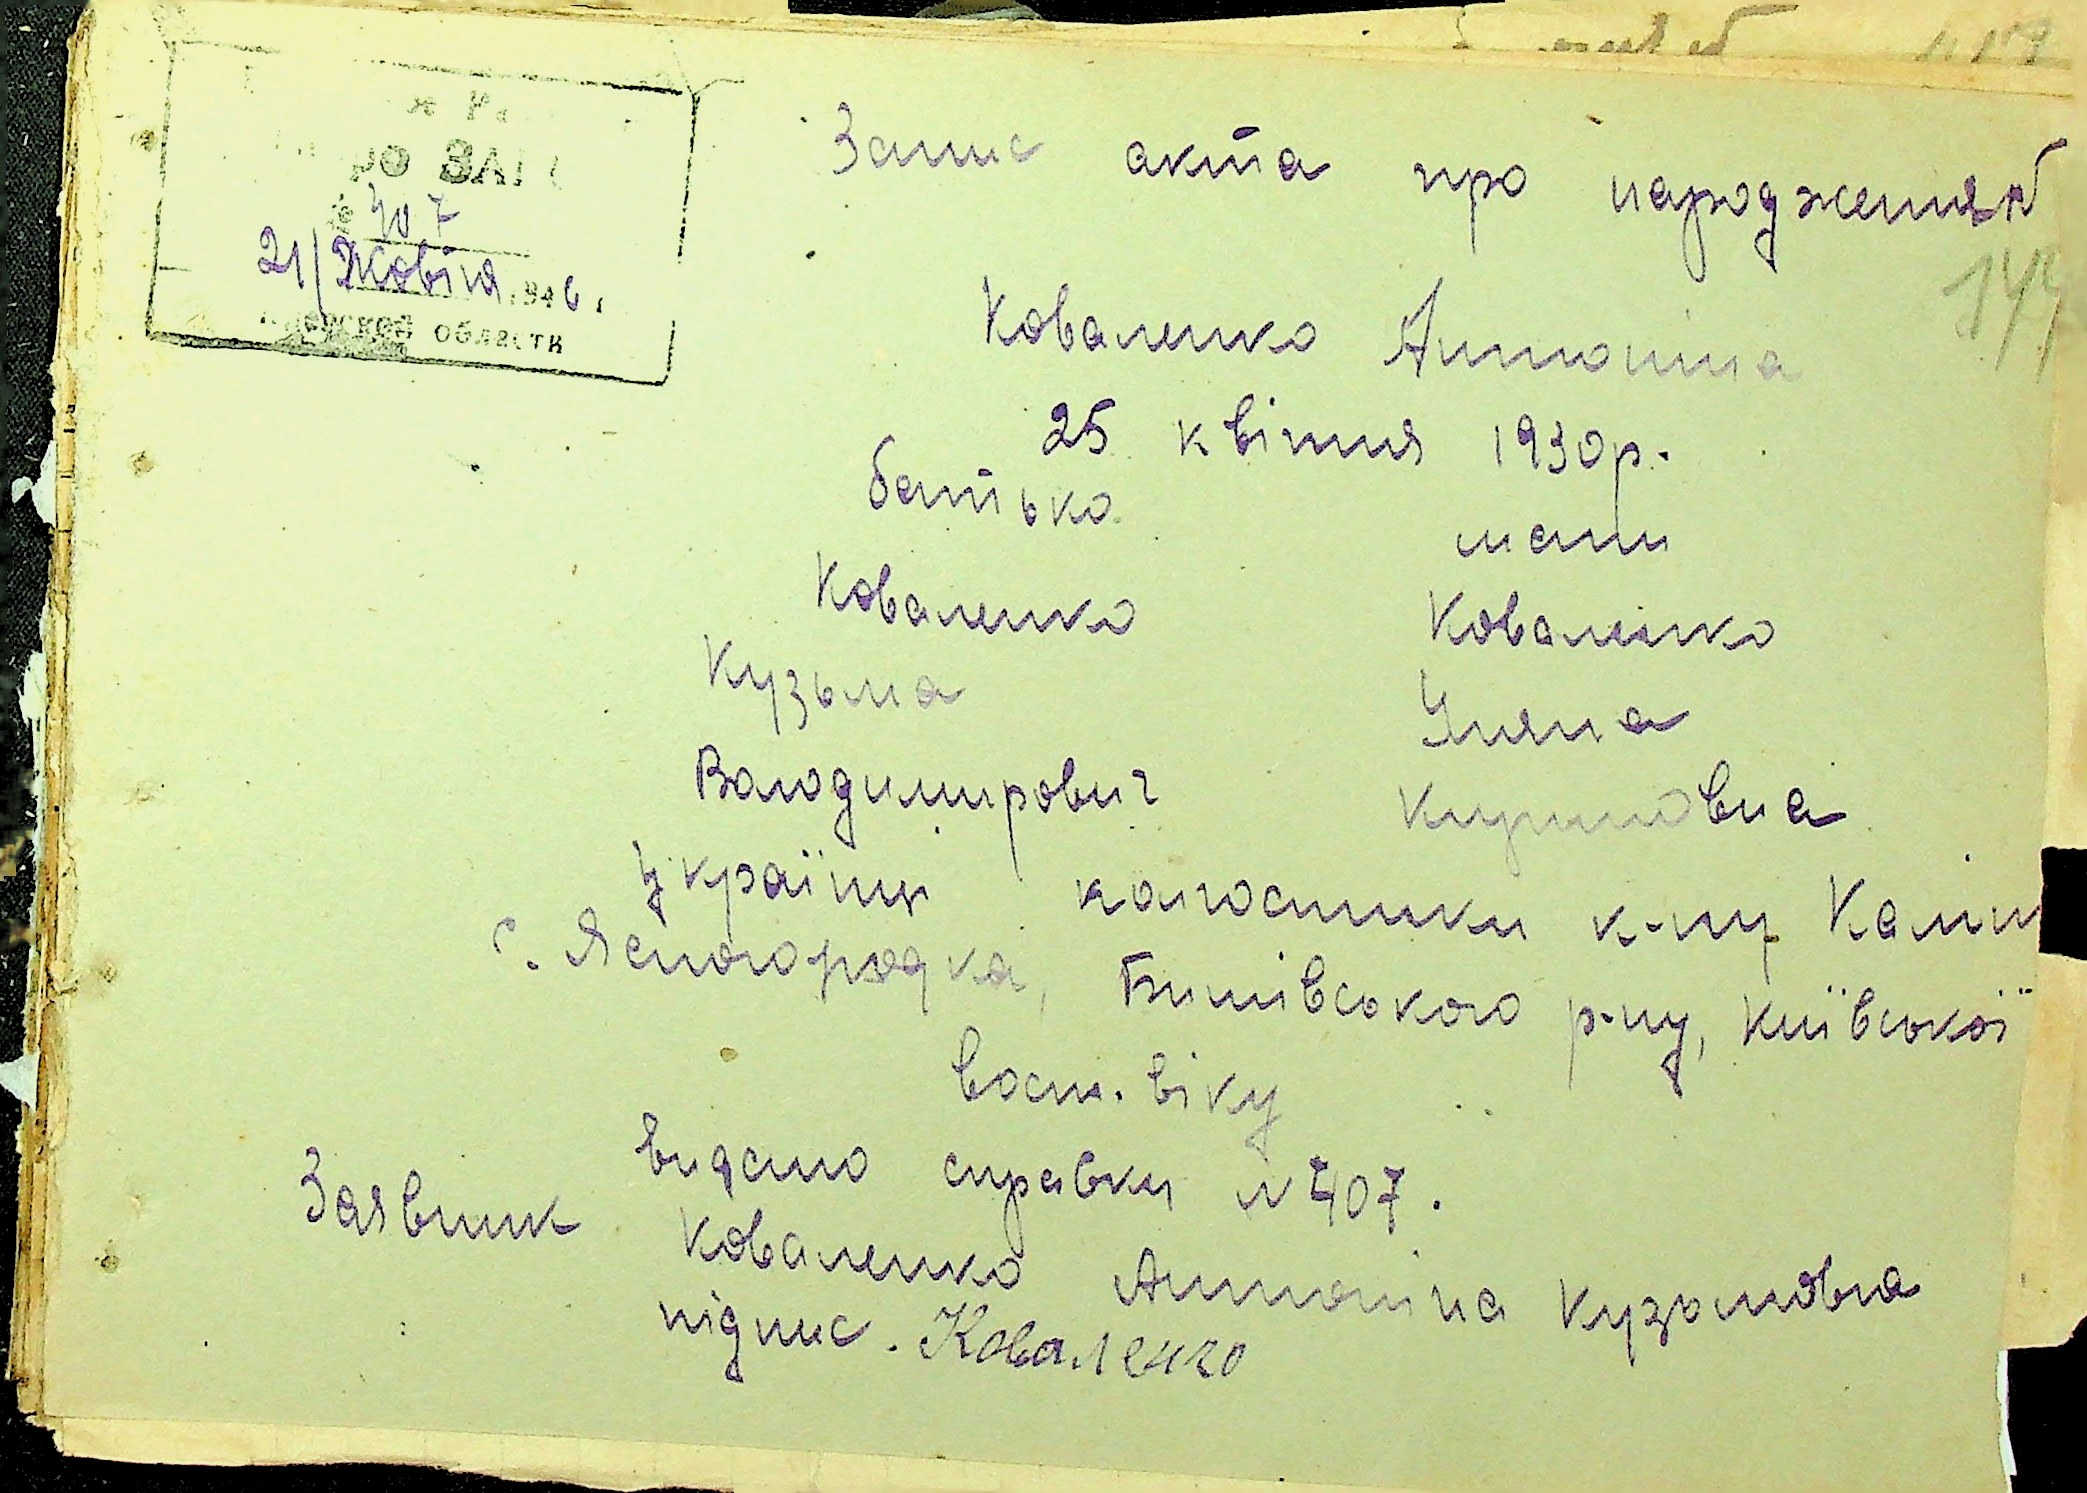 РО ЗАГС
407
21/Жовтня 1946 г
области
Запис акта про народження
Коваленко Антоніна
25 квітня 1930р.
батько
мати
Коваленко
Коваленко
Кузьма
Уляна
Володимирович
Українці колгоспники к-пу Калін
с. Ясногородка, Бишівського р-ну, Київської
восн. віку
видано справку № 407.
Заявник Коваленко Антоніна Кузьмовна
підпис. Коваленко